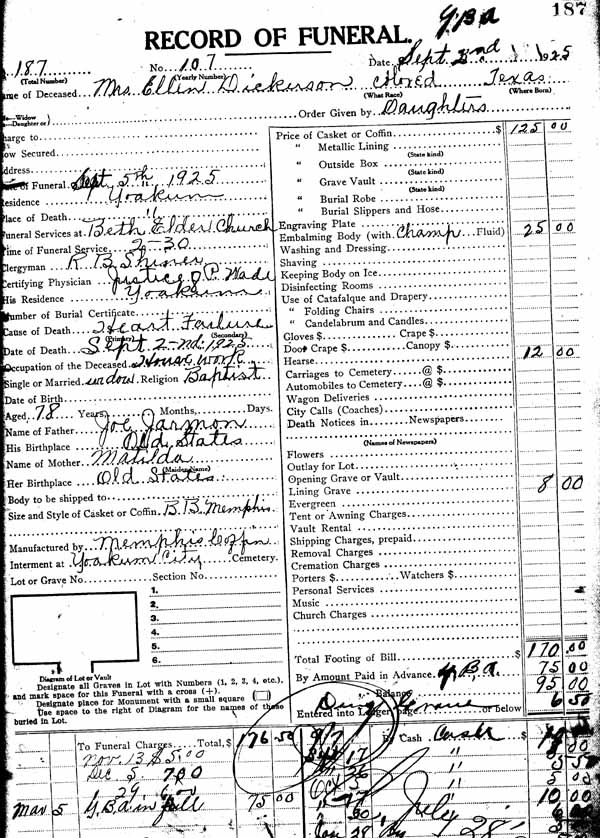 G.B.a 187
RECORD OF FUNERAL.
187 No. 107 Date Sept 2nd 1925
(Total Number) (Yearly Number)
me of Deceased Mrs Ellen Dickerson Colored Texas
(What Race) (Where Born)
Widow
Daughter or Order Given by Daughters
harge to
ow Secured
ddress
of Funeral Sept 5th 1925
Residence Yoakum
Place of Death "
Funeral Services at Beth Elder Church
Time of Funeral Service 2-30
Clergyman R. B.
Certifying Physician Justice P. Wade
His Residence Yoakum
Number of Burial Certificate
Cause of Death Heart Failure
(Primary) (Secondary)
Date of Death Sept 2-nd 1925
Occupation of the Deceased House work
Single or Married widow Religion Baptist
Date of Birth
Aged 78 Years, Months, Days.
Name of Father Joe Jarmon
His Birthplace Old States
Name of Mother Matilda
(Maiden Name)
Her Birthplace Old States
Body to be shipped to
Size and Style of Casket or Coffin B.B. Memphis
Manufactured by Memphis Coffin
Interment at Yoakum City Cemetery.
Lot or Grave No. Section No.
1.
2.
3.
4.
5.
6.
Diagram of Lot or Vault
Designate all Graves in Lot with Numbers (1, 2, 3, 4, etc.),
and mark space for this Funeral with a cross (+).
Designate place for Monument with a small square
Use space to the right of Diagram for the names of those
buried in Lot.
Price of Casket or Coffin $ 125 00
" Metallic Lining
(State kind)
" Outside Box
(State kind)
" Grave Vault
(State kind)
" Burial Robe
" Burial Slippers and Hose
Engraving Plate
Embalming Body (with Champ Fluid) 25 00
Washing and Dressing
Shaving
Keeping Body on Ice
Disinfecting Rooms
Use of Catafalque and Drapery
" Folding Chairs
" Candelabrum and Candles
Gloves $ Crape $
Door Crape $ Canopy $
Hearse 12 00
Carriages to Cemetery @ $
Automobiles to Cemetery @ $
Wagon Deliveries
City Calls (Coaches)
Death Notices in Newspapers
(Names of Newspapers)
Flowers
Outlay for Lot
Opening Grave or Vault 8 00
Lining Grave
Evergreen
Tent or Awning Charges
Vault Rental
Shipping Charges, prepaid
Removal Charges
Cremation Charges
Porters $ Watchers $
Personal Services
Music
Church Charges
Total Footing of Bill $ 170 00
By Amount Paid in Advance G.B.a. 75 00
Balance 95 00
Entered into Ledger, page or below 6 50
To Funeral Charges Total, $ 176 50 9/7 By Cash
Nov. 13 $ 5.00 17 "
Dec 5. 7.00 "
29 Oct "
Mar 5 G.B.a in full 75 00 July " 10 00
28